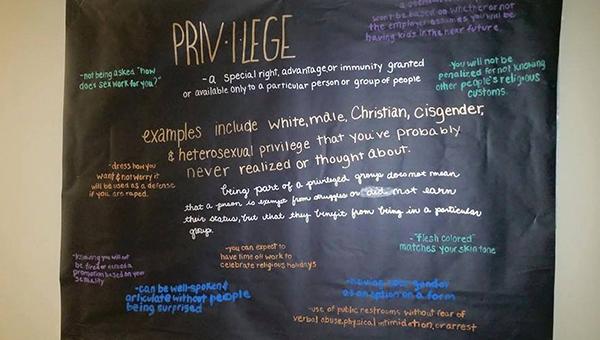 won't be based on whether or not
the employer assumes you will be
having kids in the near future.
PRIV·I·LEGE
-not being asked "how
does sex work for you?"
- a special right, advantage, or immunity granted
or available only to a particular person or group of people
-You will not be
penalized for not knowing
other people's religious
customs.
examples include white, male, Christian, cisgender,
& heterosexual privilege that you've probably
never realized or thought about.
-dress how you
want & not worry it
will be used as a defense
if you are raped.
being part of a privileged group does not mean
that a person is exempt from struggles or did not earn
their status, but that they benefit from being in a particular
group.
-you can expect to
have time off work to
celebrate religious holidays
-"flesh colored"
matches your skin tone
-knowing you will not
be fired or denied a
promotion based on your
sexuality
-can be well-spoken &
articulate without people
being surprised
-having your gender
as an option on a form
-use of public restrooms without fear of
verbal abuse, physical intimidation, or arrest